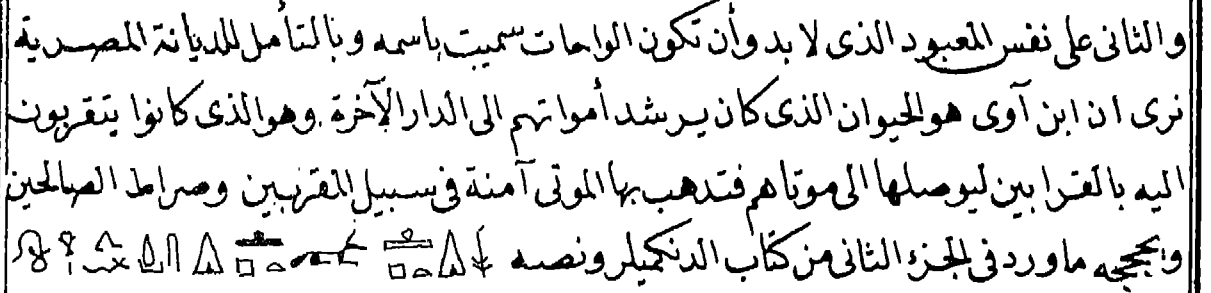 والثانى على نفس المعبود الذى لا بد وأن تكون الواحات سميت باسمه وبالتأمل للديانة المصرية
نرى ان ابن آوى هو الحيوان الذى كان يرشد أمواتهم الى الدار الآخرة وهو الذى كانوا يتقربون
اليه بالقرابين ليوصلها الى موتاهم فتدهب بها الموتى آمنة فى سبيل المقربين وصراط الصالحين
ما ورد فى الجزء الثانى من كتاب الدنكميلر ونصه